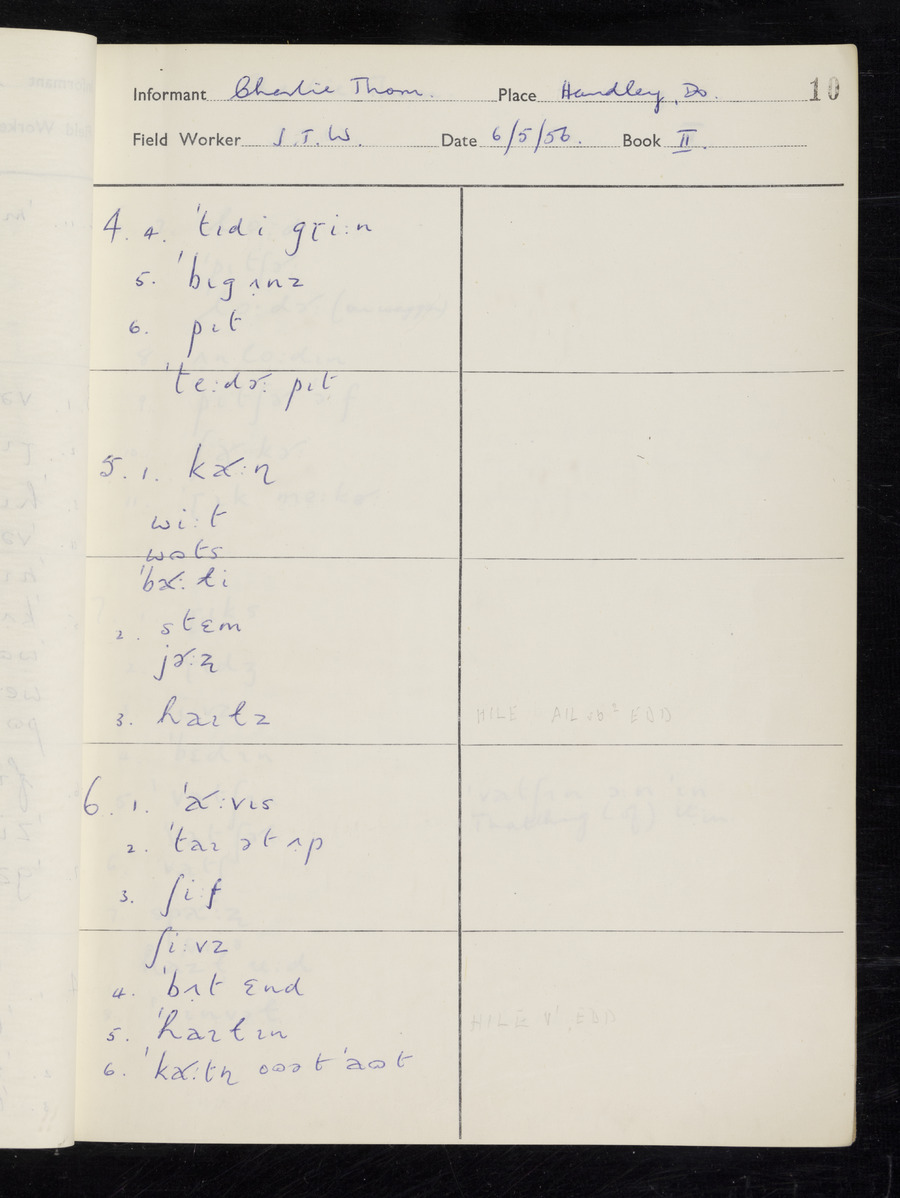 Informant Charlie Thom. Place Handley, Do. 10
Field Worker J.T.W. Date 6/5/56. Book II.
4. 4. ˈtɪdi gɽiːn
5. ˈbɪgɪnz
6. pɪt
ˈteːdɚː pɪt
5. 1. kɑ˞ːɳ
wiːt
wɒts
ˈbɑ˞ːli
2. stɛm
jɚːz̢
3. haɪlz
HILE AIL sb² EDD
6. 1. ˈɑ˞ːvɪs
2. ˈtaɪ ət ʌp
3. ʃiːf
ʃiːvz
4. ˈbʌt ɛnd
5. ˈhaɪlɪn
HILE v¹, EDD
6. ˈkɑ˞ːtɳ